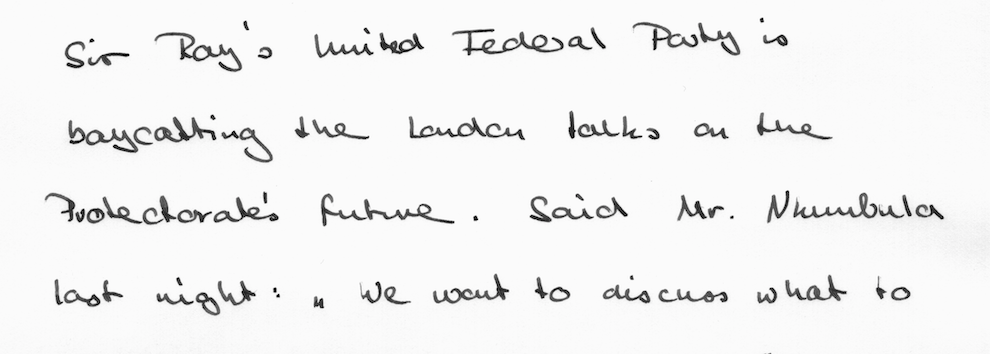 Sir Roy's United Federal Party is
boycotting the London talks on the
Protectorate's future. Said Mr. Nkumbula
last night: „We want to discuss what to